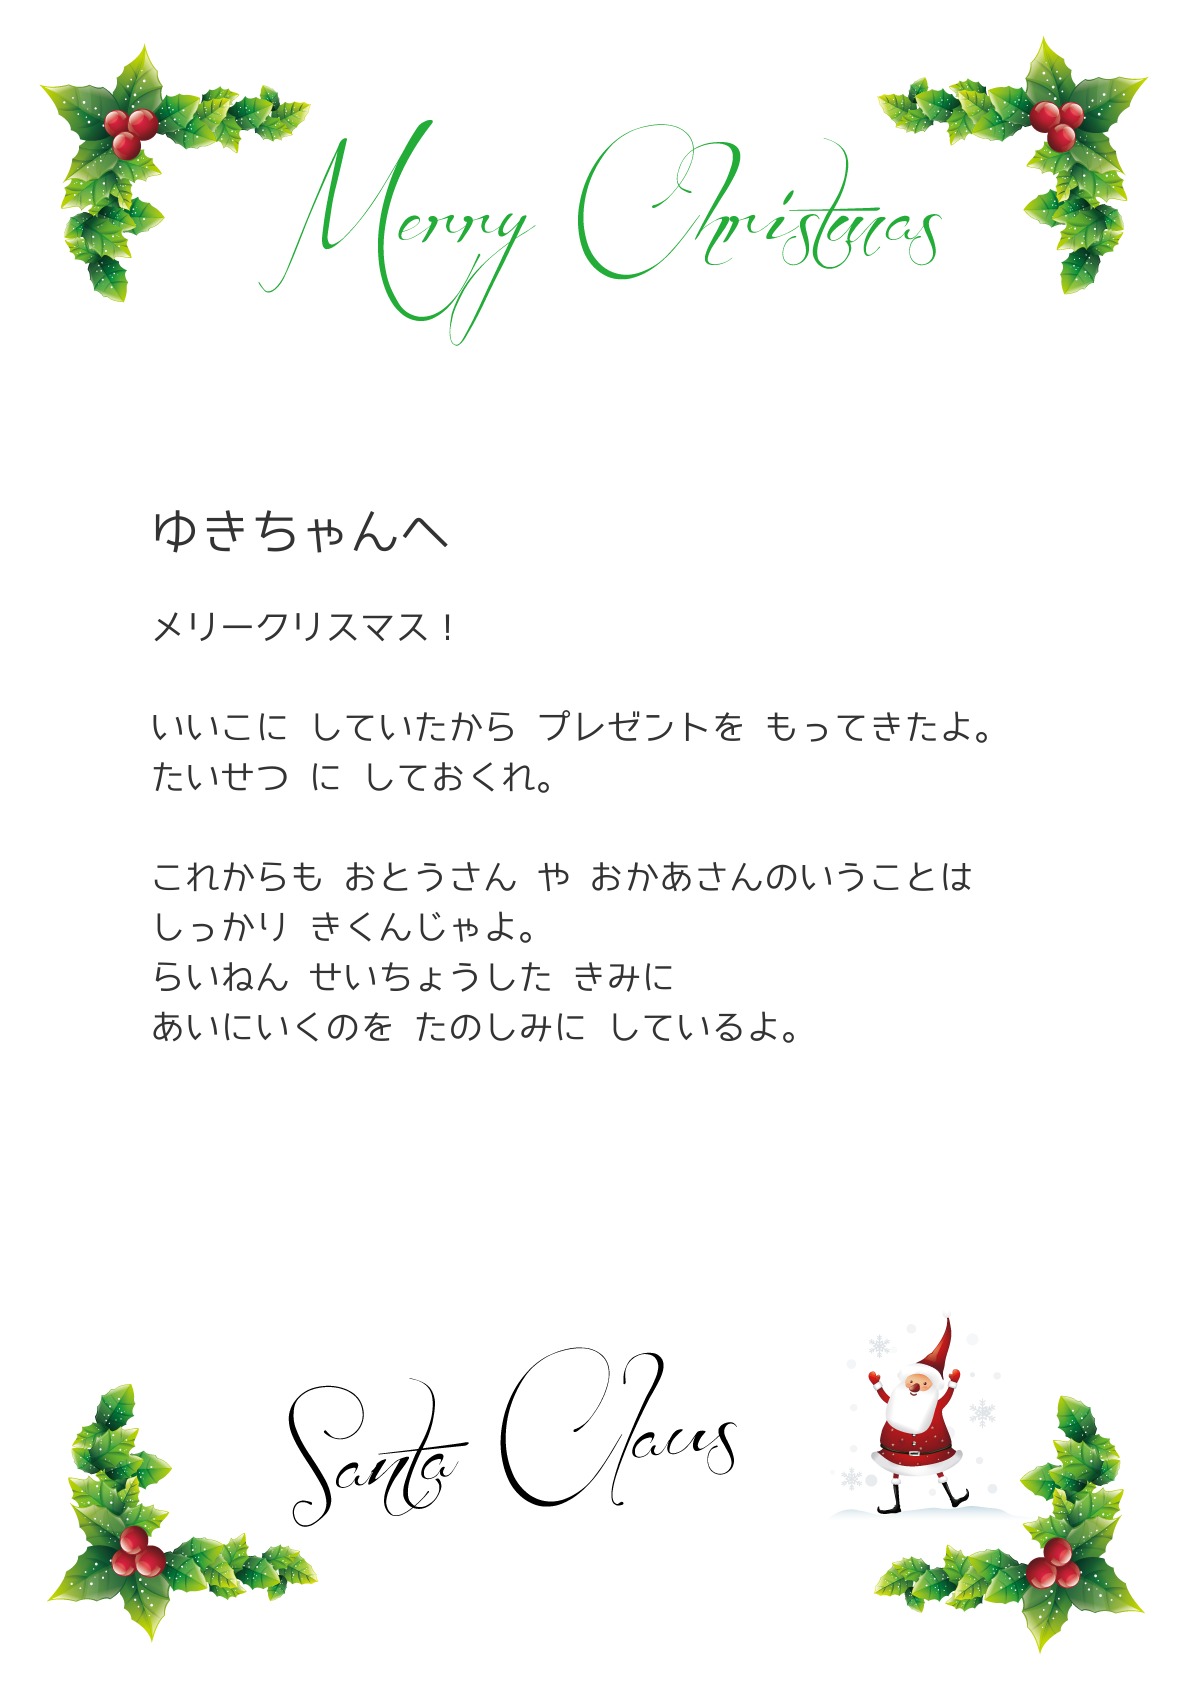 Merry Christmas
ゆきちゃんへ
メリークリスマス！
いいこに していたから プレゼントを もってきたよ。
たいせつ に しておくれ。
これからも おとうさん や おかあさんのいうことは
しっかり きくんじゃよ。
らいねん せいちょうした きみに
あいにいくのを たのしみに しているよ。
Santa Claus